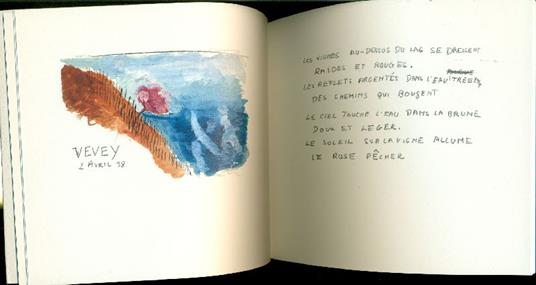 VEVEY
2 AVRIL 98
LES VIGNES AU-DESSUS DU LAC SE DRESSENT
RAIDES ET ROUGES.
LES REFLETS ARGENTÉS DANS L'EAU
DES CHEMINS QUI BOUGENT
LE CIEL TOUCHE L'EAU DANS LA BRUNE
DOUX ET LEGER.
LE SOLEIL SUR LA VIGNE ALLUME
LE ROSE PÊCHER